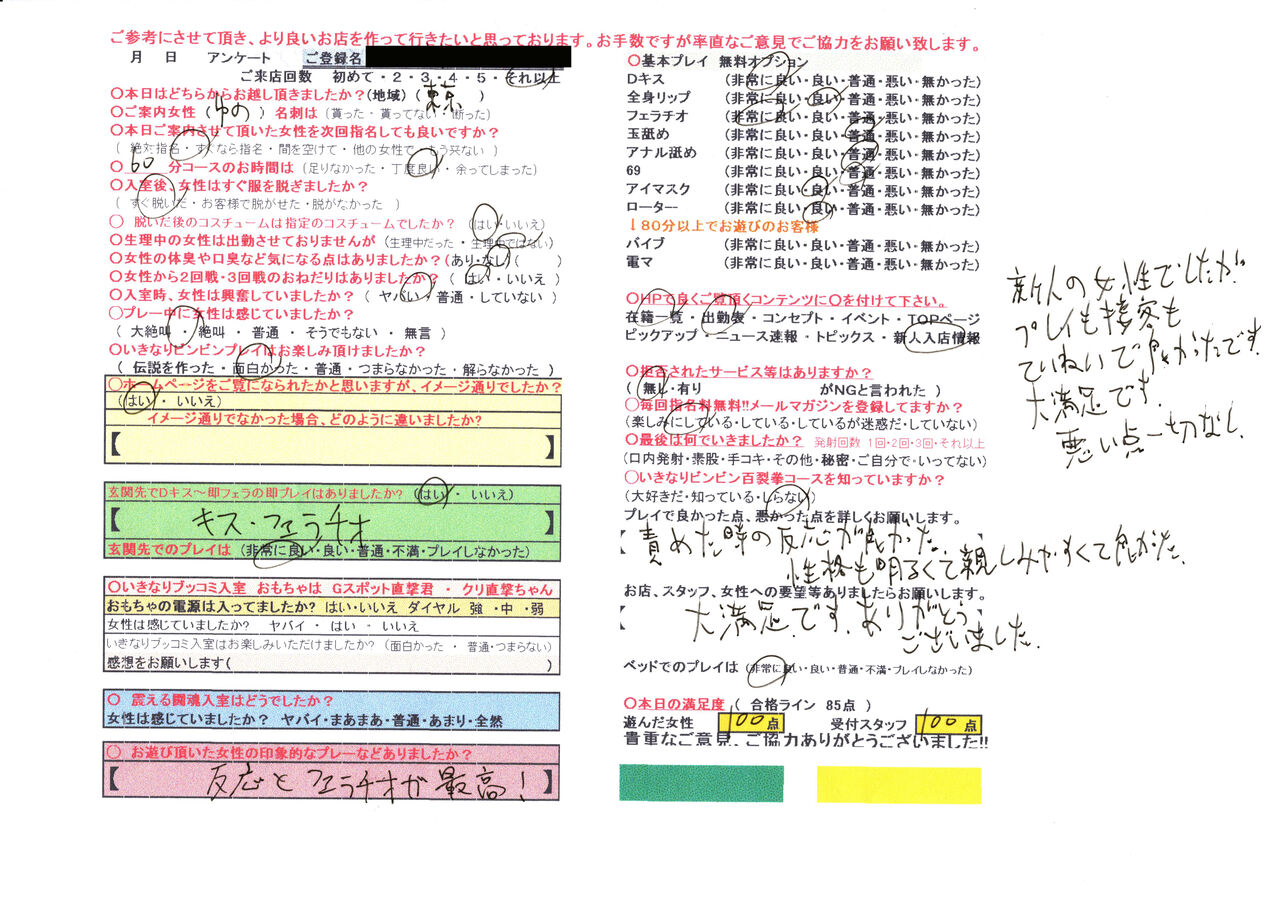 ご参考にさせて頂き、より良いお店を作って行きたいと思っております。お手数ですが率直なご意見でご協力をお願い致します。
月 日 アンケート ご登録名
ご来店回数 初めて・2・3・4・5・それ以上
〇本日はどちらからお越し頂きましたか?(地域) ( 東京 )
〇ご案内女性 ( ゆの ) 名刺は (貰った・貰ってない・断った)
〇本日ご案内させて頂いた女性を次回指名しても良いですか?
( 絶対指名・すぐなら指名・間を空けて・他の女性で・もう来ない )
〇 60 分コースのお時間は (足りなかった・丁度良い・余ってしまった)
〇入室後、女性はすぐ服を脱ぎましたか?
( すぐ脱いだ・お客様で脱がせた・脱がなかった )
〇 脱いだ後のコスチュームは指定のコスチュームでしたか? (はい・いいえ)
〇生理中の女性は出勤させておりませんが (生理中だった・生理中ではない)
〇女性の体臭や口臭など気になる点はありましたか?(あり・なし) ( )
〇女性から2回戦・3回戦のおねだりはありましたか? ( はい・いいえ )
〇入室時、女性は興奮していましたか? ( ヤバい・普通・していない )
〇プレー中に女性は感じていましたか?
( 大絶叫・絶叫・普通・そうでもない・無言 )
〇いきなりビンビンプレイはお楽しみ頂けましたか?
( 伝説を作った・面白かった・普通・つまらなかった・解らなかった )
〇ホームページをご覧になられたかと思いますが、イメージ通りでしたか?
(はい・いいえ)
イメージ通りでなかった場合、どのように違いましたか?
【 】
玄関先でDキス～即フェラの即プレイはありましたか? (はい・いいえ)
【 キス・フェラチオ 】
玄関先でのプレイは (非常に良い・良い・普通・不満・プレイしなかった)
〇いきなりブッコミ入室 おもちゃは Gスポット直撃君 ・ クリ直撃ちゃん
おもちゃの電源は入ってましたか? はい・いいえ ダイヤル 強・中・弱
女性は感じていましたか? ヤバイ・はい・いいえ
いきなりブッコミ入室はお楽しみいただけましたか? (面白かった・普通・つまらない)
感想をお願いします( )
〇 震える闘魂入室はどうでしたか?
女性は感じていましたか? ヤバイ・まあまあ・普通・あまり・全然
〇 お遊び頂いた女性の印象的なプレーなどありましたか?
【 反応とフェラチオが最高! 】
〇基本プレイ 無料オプション
Dキス (非常に良い・良い・普通・悪い・無かった)
全身リップ (非常に良い・良い・普通・悪い・無かった)
フェラチオ (非常に良い・良い・普通・悪い・無かった)
玉舐め (非常に良い・良い・普通・悪い・無かった)
アナル舐め (非常に良い・良い・普通・悪い・無かった)
69 (非常に良い・良い・普通・悪い・無かった)
アイマスク (非常に良い・良い・普通・悪い・無かった)
ローター (非常に良い・良い・普通・悪い・無かった)
↓80分以上でお遊びのお客様
バイブ (非常に良い・良い・普通・悪い・無かった)
電マ (非常に良い・良い・普通・悪い・無かった)
〇HPで良くご覧頂くコンテンツに〇を付けて下さい。
在籍一覧・出勤表・コンセプト・イベント・TOPページ
ピックアップ・ニュース速報・トピックス・新人入店情報
〇拒否されたサービス等はありますか?
( 無し・有り がNGと言われた )
〇毎回指名料無料!!メールマガジンを登録してますか?
(楽しみにしている・している・しているが迷惑だ・していない)
〇最後は何でいきましたか? 発射回数 1回・2回・3回・それ以上
(口内発射・素股・手コキ・その他・秘密・ご自分で・いってない)
〇いきなりビンビン百裂拳コースを知っていますか?
(大好きだ・知っている・しらない)
プレイで良かった点、悪かった点を詳しくお願いします。
【 責めた時の反応が良かった。
性格も明るくて親しみやすくて良かった。
お店、スタッフ、女性への要望等ありましたらお願いします。
大満足です。ありがとう
ございました。
ベッドでのプレイは (非常に良い・良い・普通・不満・プレイしなかった)
〇本日の満足度 ( 合格ライン 85点 )
遊んだ女性 100点 受付スタッフ 100点
貴重なご意見、ご協力ありがとうございました!!
新人の女性でしたが
プレイも接客も
ていねいで良かったです。
大満足です。
悪い点一切なし